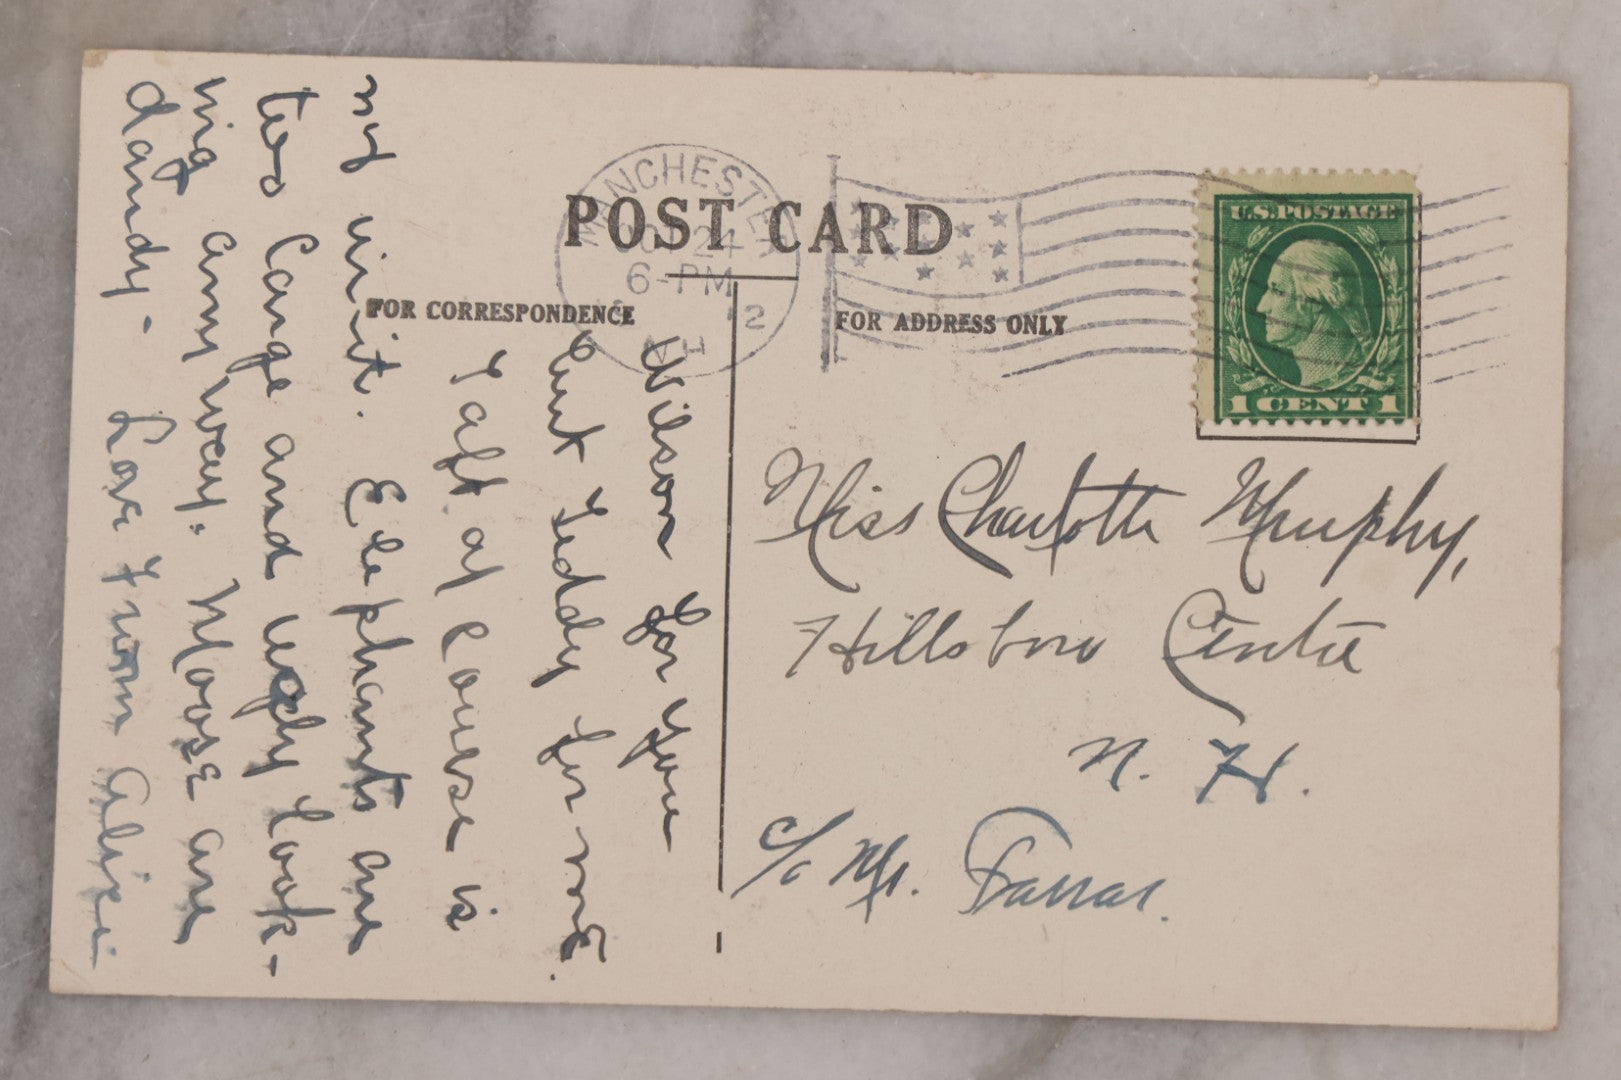 POST CARD
FOR CORRESPONDENCE
FOR ADDRESS ONLY
MANCHESTER
24
6-PM
2
U.S. POSTAGE
1 CENT 1
Wilson for you
but Teddy for me.
Taft of course is
my in it. Elephants are
too large and ugly look-
ing any way. Moose are
dandy - Love from Alice
Miss Charlotte Murphy,
Hillsboro Centre
N. H.
c/o Mr. Farrar.